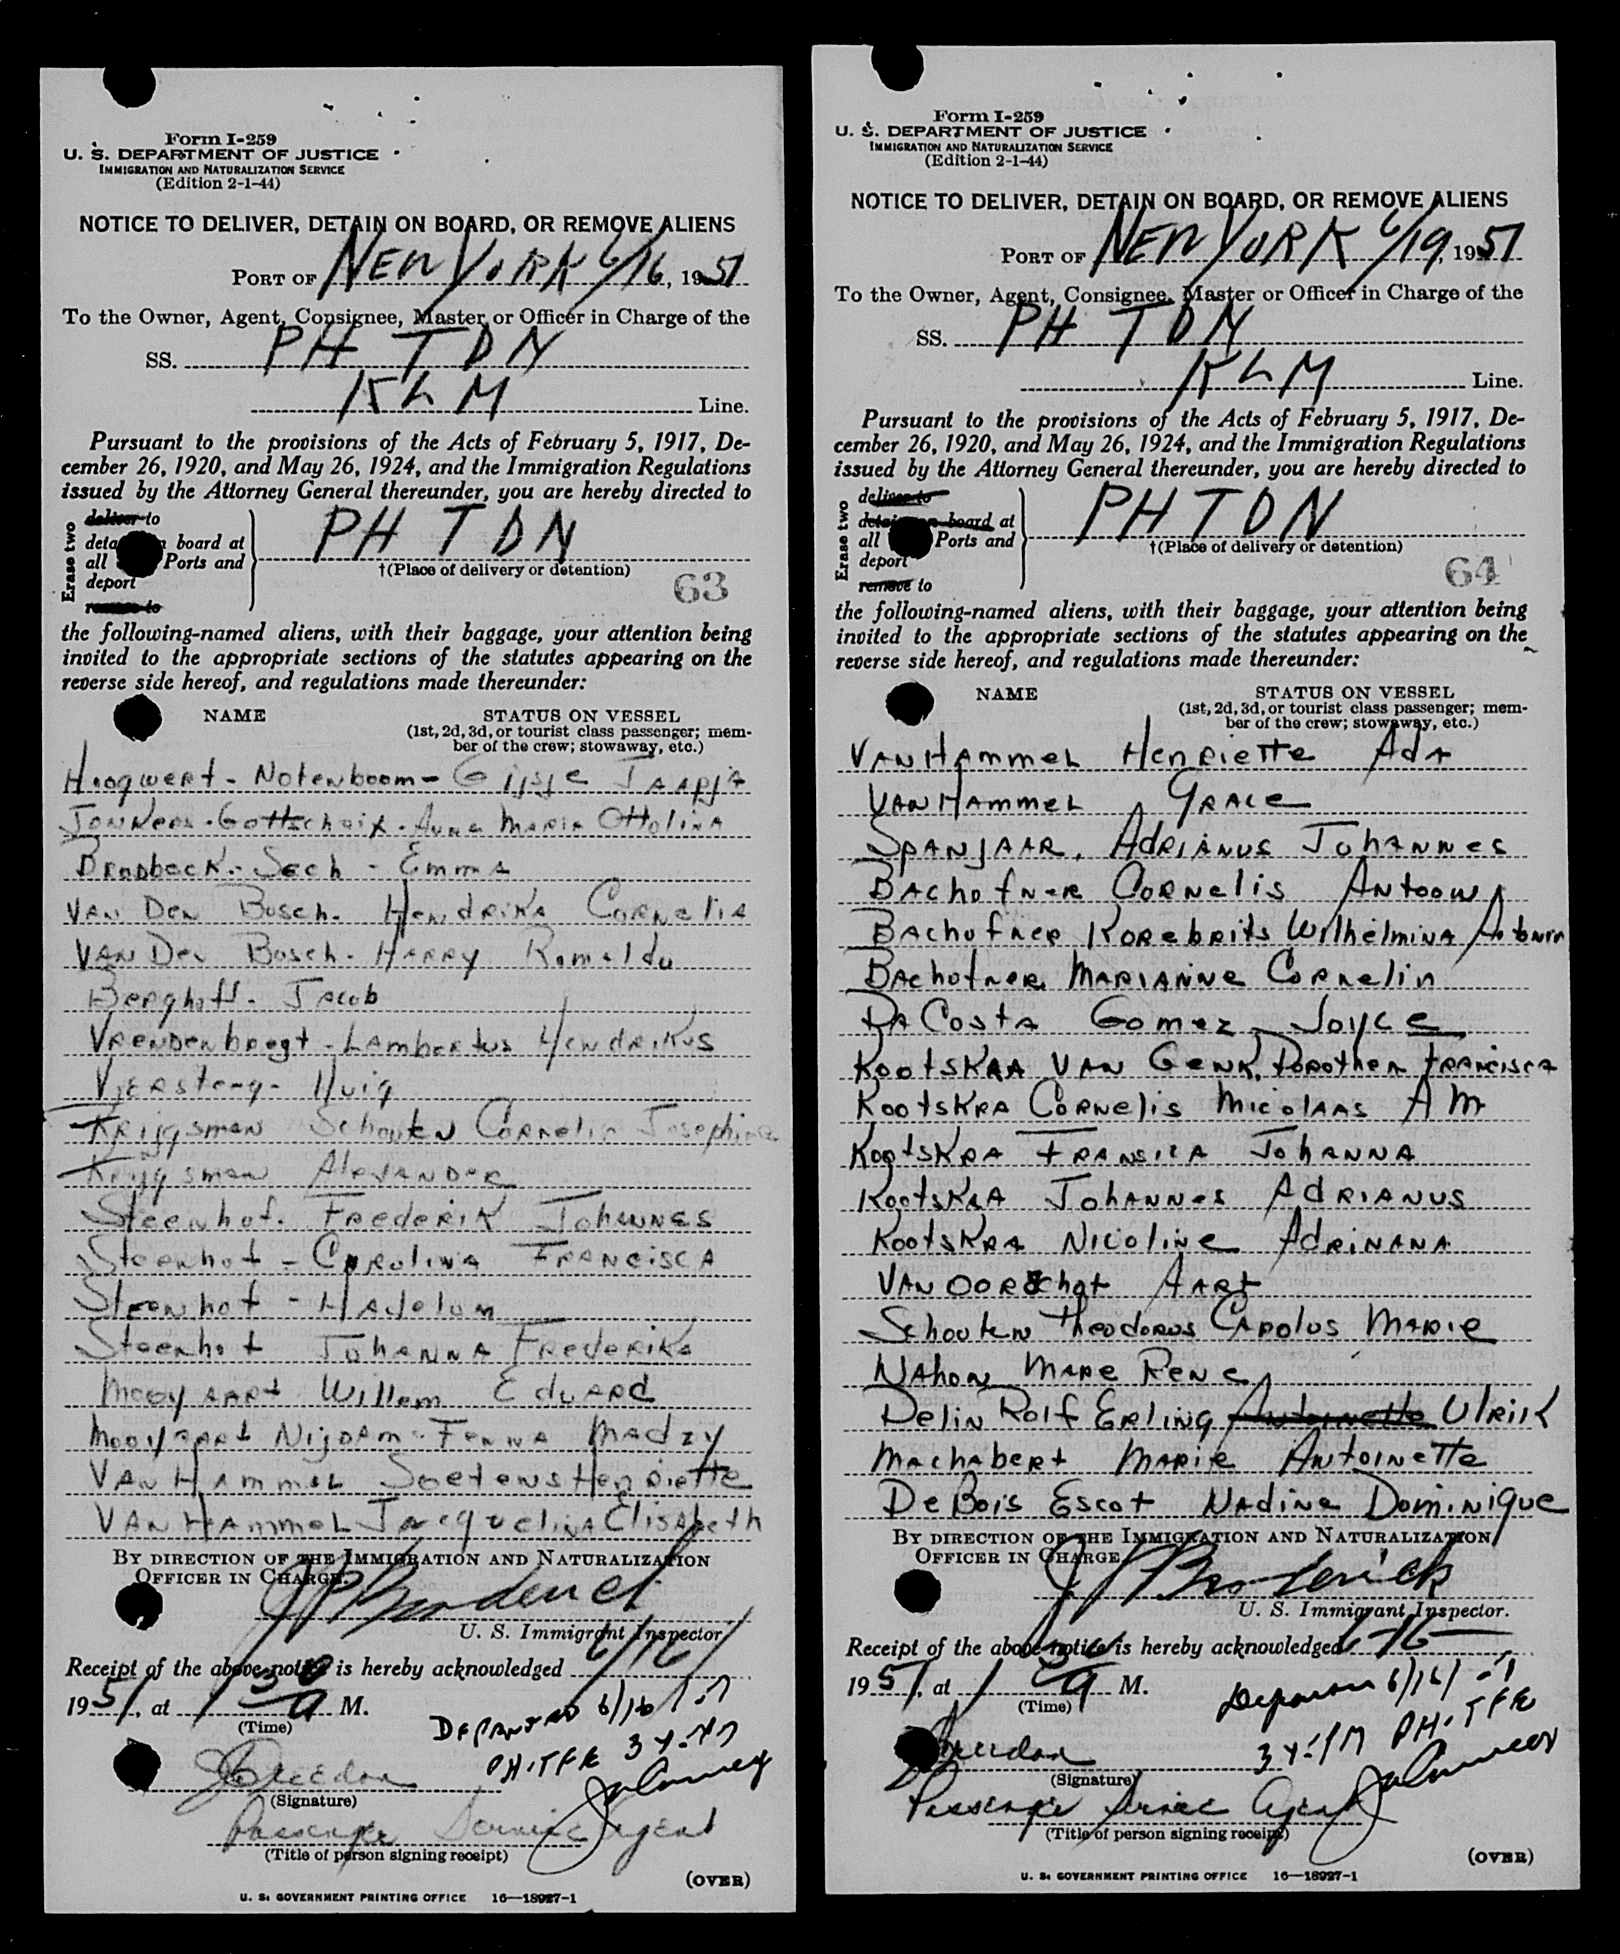 Form I-259
U. S. DEPARTMENT OF JUSTICE
IMMIGRATION AND NATURALIZATION SERVICE
(Edition 2-1-44)
NOTICE TO DELIVER, DETAIN ON BOARD, OR REMOVE ALIENS
PORT OF NEW YORK 6/16, 1951
To the Owner, Agent, Consignee, Master or Officer in Charge of the
SS. PH TDN
KLM Line.
Pursuant to the provisions of the Acts of February 5, 1917, De-
cember 26, 1920, and May 26, 1924, and the Immigration Regulations
issued by the Attorney General thereunder, you are hereby directed to
Erase two
deliver to
board at
all Ports and
deport
remove to
PH TDN
†(Place of delivery or detention)
63
the following-named aliens, with their baggage, your attention being
invited to the appropriate sections of the statutes appearing on the
reverse side hereof, and regulations made thereunder:
NAME STATUS ON VESSEL
(1st, 2d, 3d, or tourist class passenger; mem-
ber of the crew; stowaway, etc.)
Hoogwert - Notenboom - Gijsje Jaapja
Jonkers - Gottschalx - Anna Maria Ottolina
Brodbeck - Sech - Emma
Van Den Bosch - Hendrika Cornelia
Van Den Bosch - Harry Romaldo
Berghoff - Jacob
Vrendenbregt - Lambertus Hendrikus
Versteeg - Huig
Krijgsman Schouten Cornelia Josephina
Krijgsman Alexander
Steenhof - Frederik Johannes
Steenhof - Carolina Francisca
Steenhof -
Steenhof Johanna Frederika
Mooyaart Willem Eduard
Mooyaart Nijdam - Fenna Madzy
Van Hammel Soetens Henriette
Van Hammel Jacquelina Elisabeth
BY DIRECTION OF THE IMMIGRATION AND NATURALIZATION
OFFICER IN CHARGE
J P Broderick
U. S. Immigrant Inspector
Receipt of the above notice is hereby acknowledged 6/16/
1951, at 1 30 A M.
(Time)
DEPARTED 6/16/51
PH-TFK
(Signature)
Passenger Service Agent
(Title of person signing receipt)
(OVER)
U. S. GOVERNMENT PRINTING OFFICE 16—18927-1
Form I-259
U. S. DEPARTMENT OF JUSTICE
IMMIGRATION AND NATURALIZATION SERVICE
(Edition 2-1-44)
NOTICE TO DELIVER, DETAIN ON BOARD, OR REMOVE ALIENS
PORT OF NEW YORK 6/19, 1951
To the Owner, Agent, Consignee, Master or Officer in Charge of the
SS. PH TDN
KLM Line.
Pursuant to the provisions of the Acts of February 5, 1917, De-
cember 26, 1920, and May 26, 1924, and the Immigration Regulations
issued by the Attorney General thereunder, you are hereby directed to
Erase two
deliver to
board at
all Ports and
deport
remove to
PH TDN
†(Place of delivery or detention)
64
the following-named aliens, with their baggage, your attention being
invited to the appropriate sections of the statutes appearing on the
reverse side hereof, and regulations made thereunder:
NAME STATUS ON VESSEL
(1st, 2d, 3d, or tourist class passenger; mem-
ber of the crew; stowaway, etc.)
Van Hammel Henriette Ada
Van Hammel Grace
Spanjaar, Adrianus Johannes
Bachofner Cornelis Antoow
Bachofner Korebrits Wilhelmina
Bachofner Marianne Cornelia
DaCosta Gomez - Joyce
Kootskra Van Genk, Dorothea Francisca
Kootskra Cornelis Nicolaas A M
Kootskra Fransica Johanna
Kootskra Johannes Adrianus
Kootskra Nicoline Adrinana
Van Oorschot Aart
Schouten Theodorus Carolus Marie
Nahon Marc Rene
Delin Rolf Erling Antoinette Ulrik
Machabert Marie Antoinette
DeBois Escot Nadine Dominique
BY DIRECTION OF THE IMMIGRATION AND NATURALIZATION
OFFICER IN CHARGE
J P Broderick
U. S. Immigrant Inspector.
Receipt of the above notice is hereby acknowledged
1951, at 1 30 A M.
(Time)
Departed 6/16/51
PH-TFK
(Signature)
Passenger Service Agent
(Title of person signing receipt)
(OVER)
U. S. GOVERNMENT PRINTING OFFICE 16—18927-1